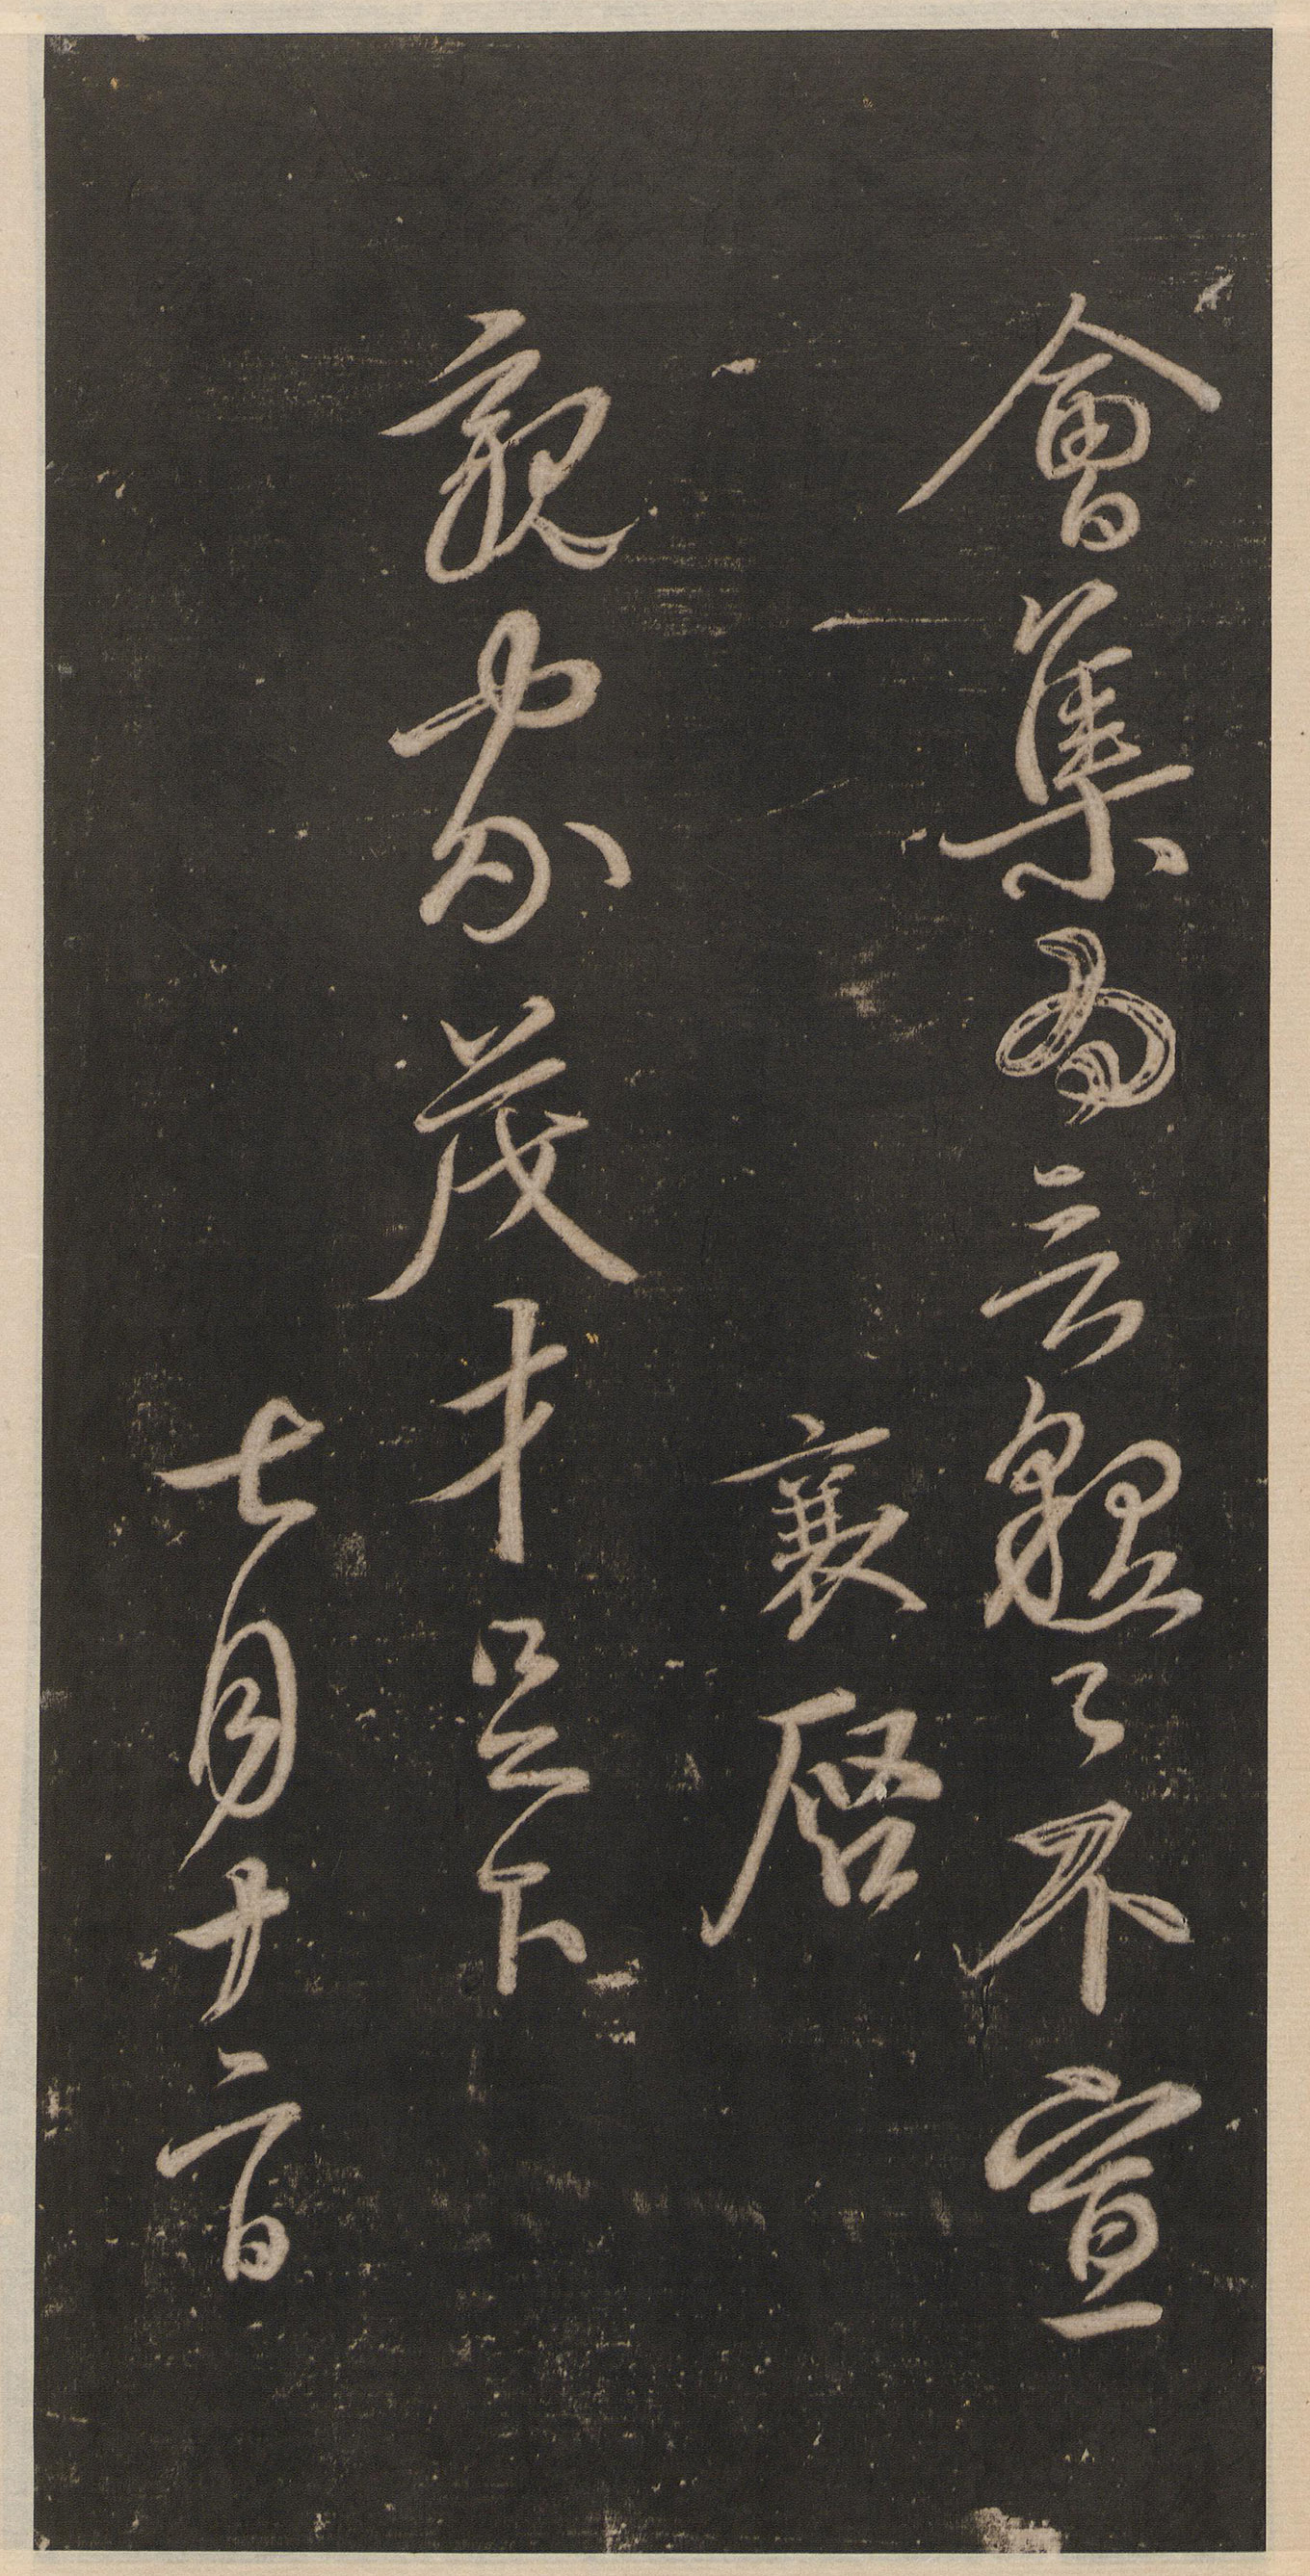 會集為言不宣
襄啓
親家茂才足下
七月十二日